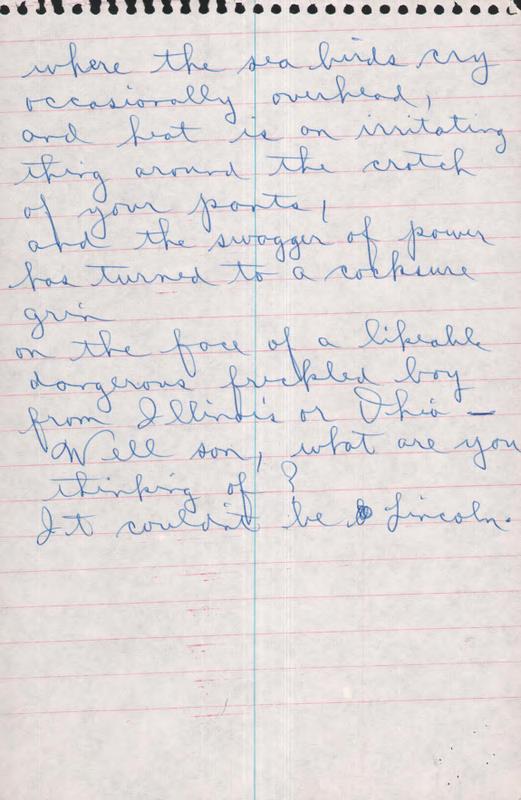 where the sea birds cry
occasionally overhead,
and heat is an irritating
thing around the crotch
of your pants,
and the swagger of power
has turned to a cocksure
grin
on the face of a likeable
dangerous freckled boy
from Illinois or Ohio —
Well son, what are you
thinking of?
It couldn't be Lincoln.